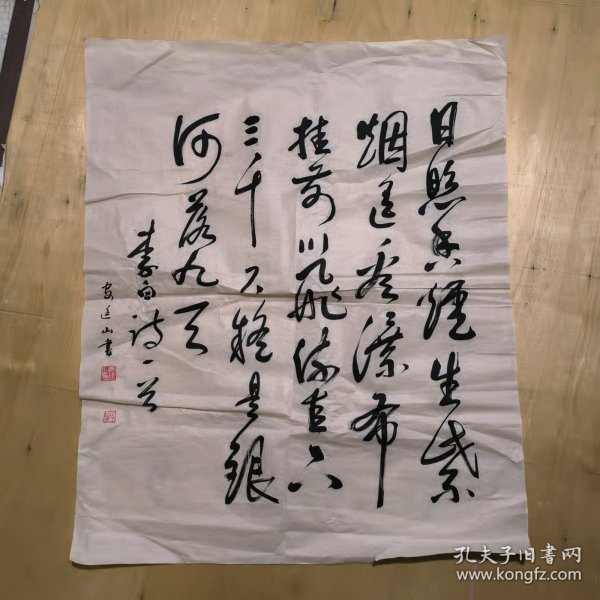 日照香爐生紫
烟遥看瀑布
挂前川飛流直下
三千尺疑是銀
河落九天
李白诗一首
安廷山書
孔夫子旧書网
www.kongfz.com